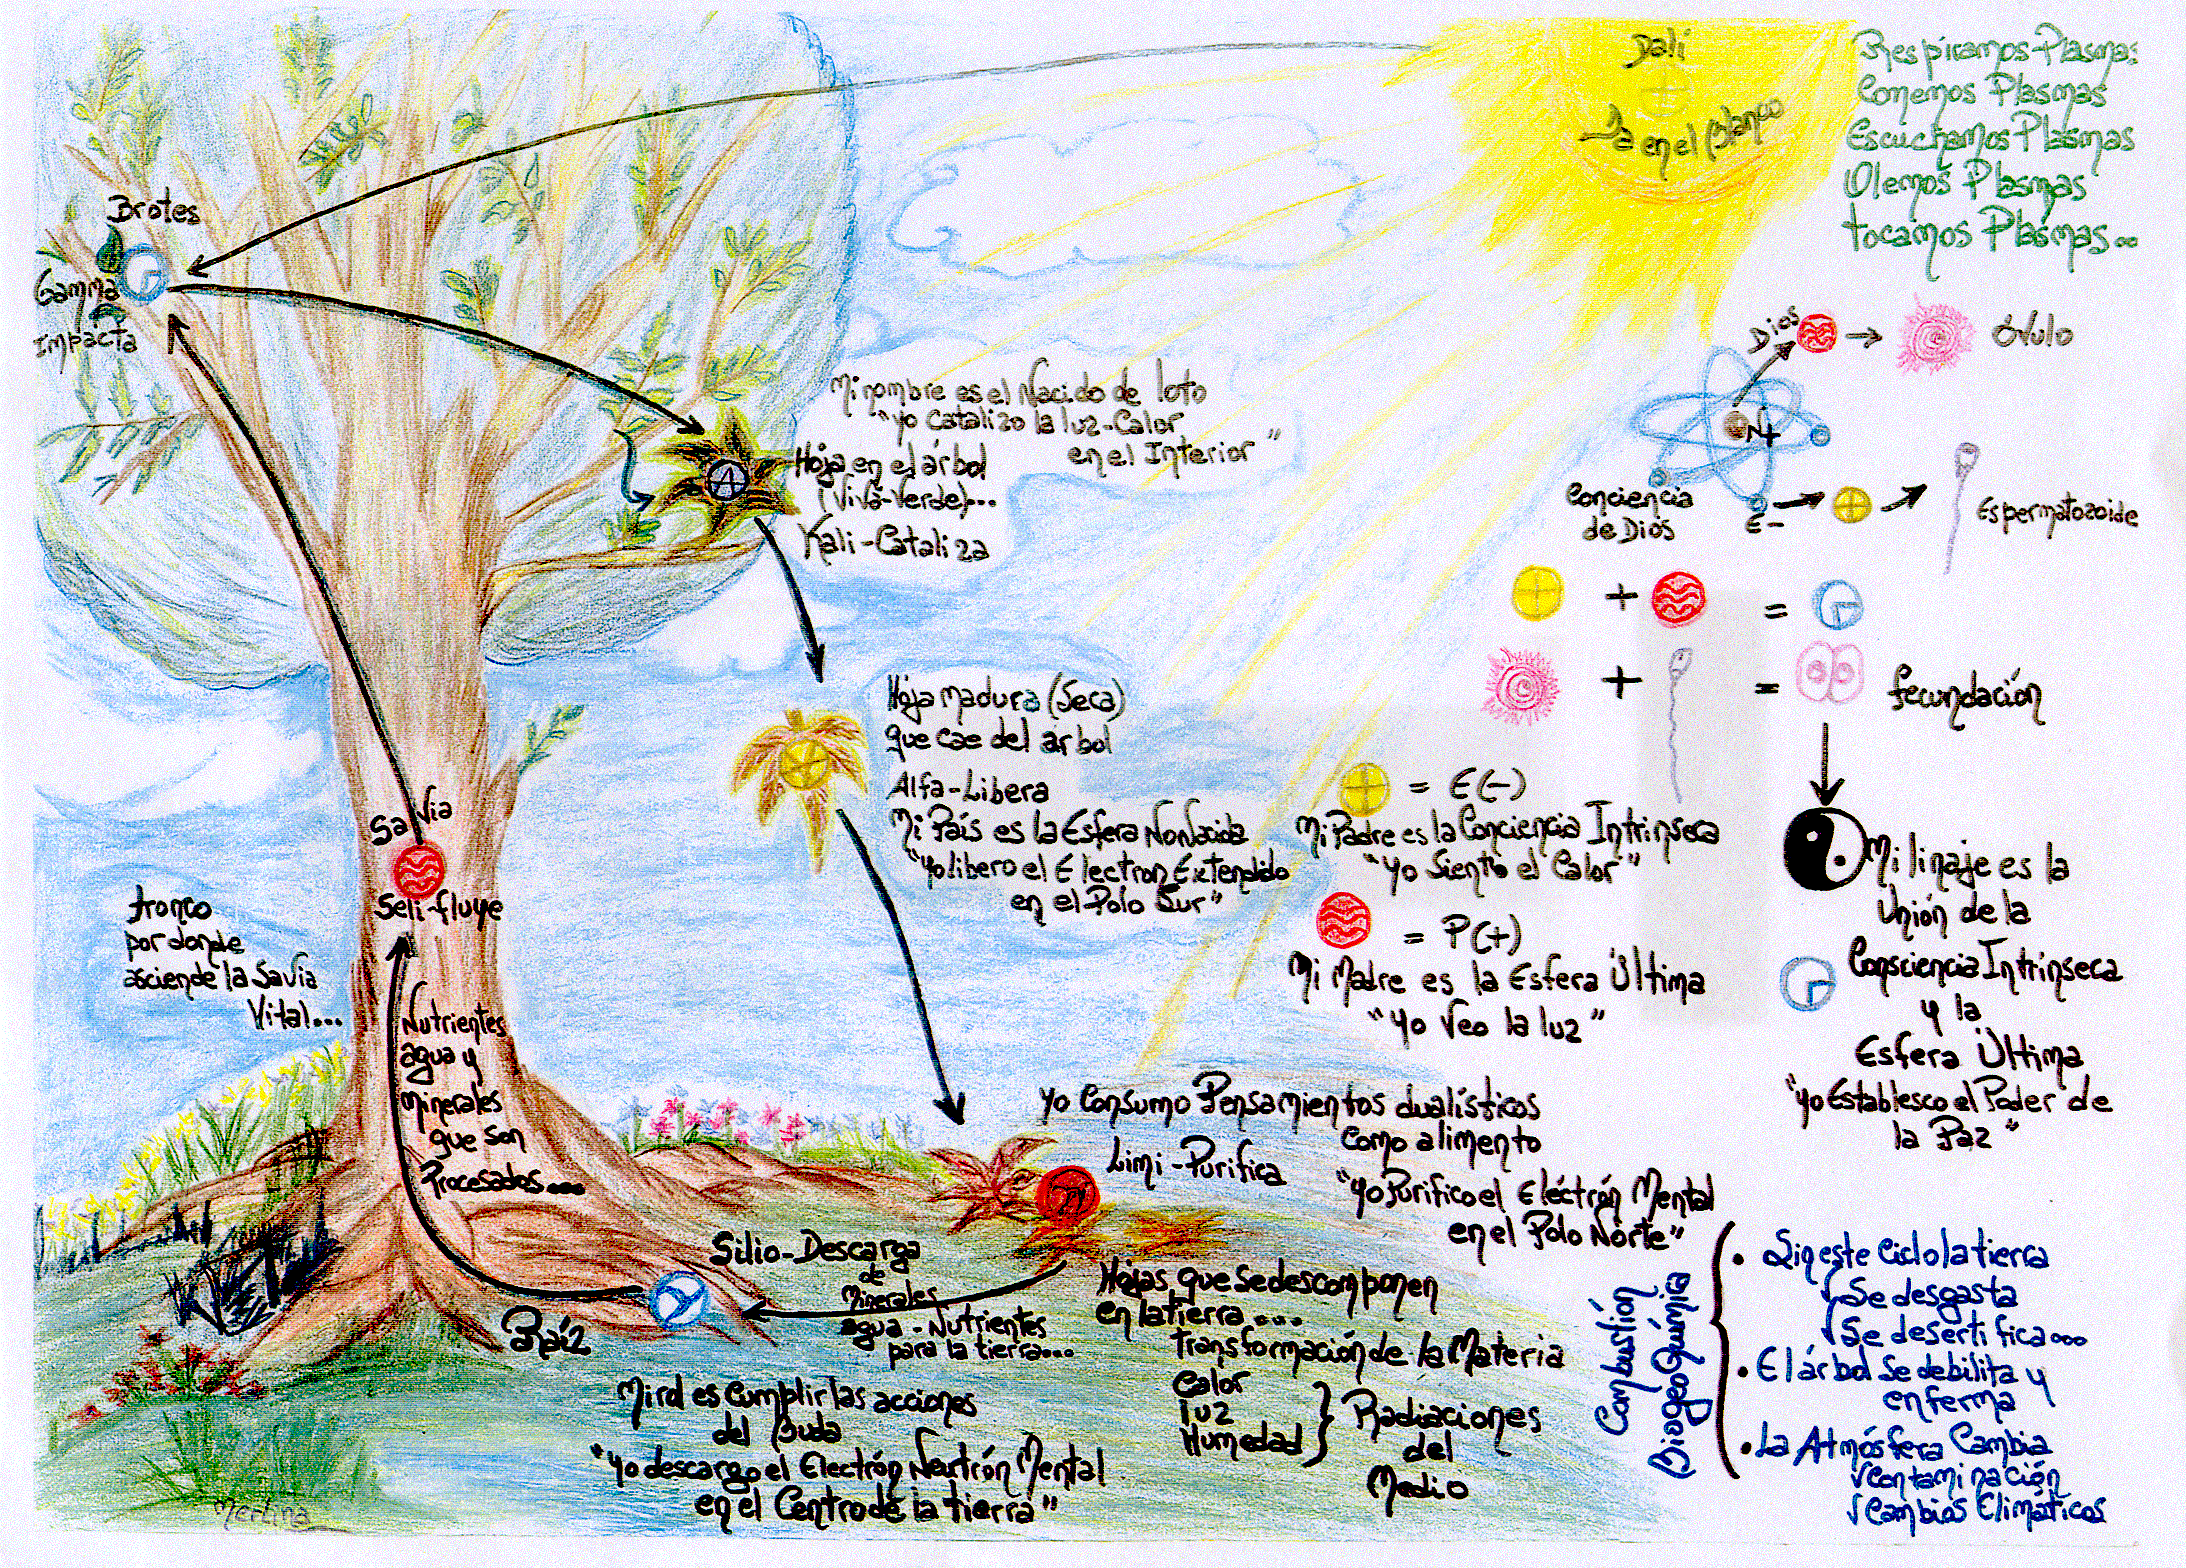 Dali
Ya en el Blanco
Respiramos Plasma:
Comemos Plasmas
Escuchamos Plasmas
Olemos Plasmas
tocamos Plasmas..
Brotes
Gamma
impacta
Mi nombre es el Nacido de loto
"Yo Catalizo la luz-Calor
en el Interior"
Hoja en el árbol
(Viva-Verde)...
Kali-Cataliza
Dios
Óvulo
N+
Conciencia
de Dios
E-
Espermatozoide
+
=
+
=
fecundación
Hoja madura (Seca)
que cae del árbol
Alfa-Libera
Mi País es la Esfera NonNacida
"Yo libero el Electron Extendido
en el Polo Sur"
= E(-)
Mi Padre es la Conciencia Intrinseca
"Yo Siento el Calor"
= P(+)
Mi Madre es la Esfera Última
"Yo Veo la luz"
Mi linaje es la
Unión de la
Consciencia Intrínseca
y la
Esfera Última
"Yo Establesco el Poder de
la Paz"
Savia
Seli-fluye
tronco
por donde
asciende la Savia
Vital...
Nutrientes
agua y
minerales
que son
Procesados...
Yo Consumo Pensamientos dualísticos
como alimento
Limi-Purifica
"Yo Purifico el Eléctrón Mental
en el Polo Norte"
Silio-Descarga
de
minerales
agua-Nutrientes
para la tierra...
Raíz
Hojas que se descomponen
en la tierra....
transformación de la Materia
Calor
luz
Humedad
Radiaciones
del
Medio
Mi rd es Cumplir las acciones
del Buda
"Yo descargo el Electrón Neutrón Mental
en el Centro de la tierra"
Combustión
BiogeoQuímica
• Sin este Ciclo la tierra
√Se desgasta
√Se desertifica...
• El árbol Se debilita y
enferma
• La Atmósfera Cambia
√Contaminación
√Cambios Climáticos
Merlina